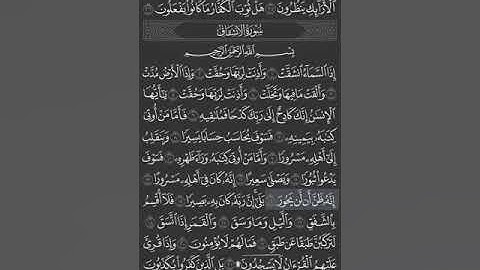 ٱلْأَرَآئِكِ يَنظُرُونَ ۝ هَلْ ثُوِّبَ ٱلْكُفَّارُ مَا كَانُوا۟ يَفْعَلُونَ ۝
سُورَةُ الِانْشِقَاقِ
بِسْمِ ٱللَّهِ ٱلرَّحْمَٰنِ ٱلرَّحِيمِ
إِذَا ٱلسَّمَآءُ ٱنشَقَّتْ ۝ وَأَذِنَتْ لِرَبِّهَا وَحُقَّتْ ۝ وَإِذَا ٱلْأَرْضُ مُدَّتْ
۝ وَأَلْقَتْ مَا فِيهَا وَتَخَلَّتْ ۝ وَأَذِنَتْ لِرَبِّهَا وَحُقَّتْ ۝ يَٰٓأَيُّهَا
ٱلْإِنسَٰنُ إِنَّكَ كَادِحٌ إِلَىٰ رَبِّكَ كَدْحًا فَمُلَٰقِيهِ ۝ فَأَمَّا مَنْ أُوتِىَ
كِتَٰبَهُۥ بِيَمِينِهِۦ ۝ فَسَوْفَ يُحَاسَبُ حِسَابًا يَسِيرًا ۝ وَيَنقَلِبُ
إِلَىٰٓ أَهْلِهِۦ مَسْرُورًا ۝ وَأَمَّا مَنْ أُوتِىَ كِتَٰبَهُۥ وَرَآءَ ظَهْرِهِۦ ۝ فَسَوْفَ
يَدْعُوا۟ ثُبُورًا ۝ وَيَصْلَىٰ سَعِيرًا ۝ إِنَّهُۥ كَانَ فِىٓ أَهْلِهِۦ مَسْرُورًا ۝
إِنَّهُۥ ظَنَّ أَن لَّن يَحُورَ ۝ بَلَىٰٓ إِنَّ رَبَّهُۥ كَانَ بِهِۦ بَصِيرًا ۝ فَلَآ أُقْسِمُ
بِٱلشَّفَقِ ۝ وَٱلَّيْلِ وَمَا وَسَقَ ۝ وَٱلْقَمَرِ إِذَا ٱتَّسَقَ ۝
لَتَرْكَبُنَّ طَبَقًا عَن طَبَقٍ ۝ فَمَا لَهُمْ لَا يُؤْمِنُونَ ۝ وَإِذَا قُرِئَ
عَلَيْهِمُ ٱلْقُرْءَانُ لَا يَسْجُدُونَ ۩ ۝ بَلِ ٱلَّذِينَ كَفَرُوا۟ يُكَذِّبُونَ